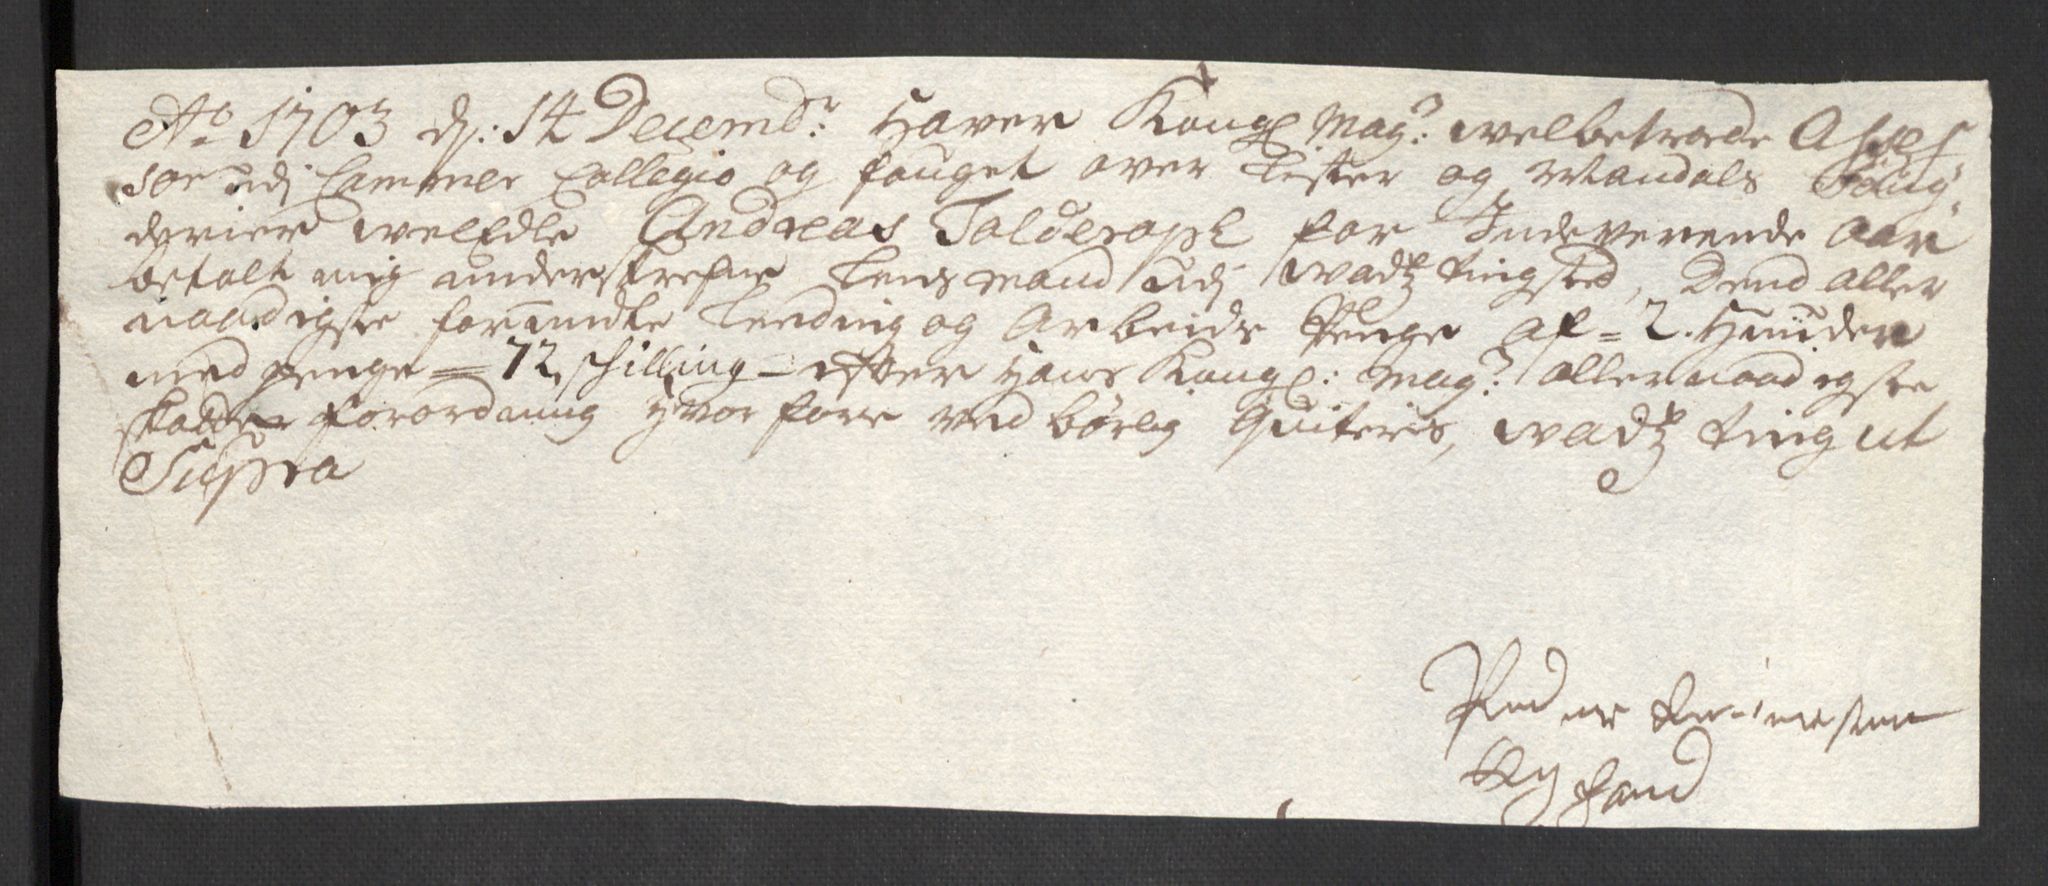 Ao 1703 dj: 14 Decembr: Haver Kongl Mayt: welbetroede Asses-
sor udj Cammer Collegio og fouget over Lister og Mandals Foug-
derier welEdle Andreas Tolderoph for Indeverende Aar
betalt mig understrefne Lensmand udj wadtz tingsted, Dend aller
naadigste forundte Lending og Arbeids Penge af = 2. Hunder
med penge = 72 schilling = efter Hans Kongl: Mayt: allernaadigste
skatte forordning hvor fore ved børlig Quiteris, wadtz ting ut
Supra
Peder